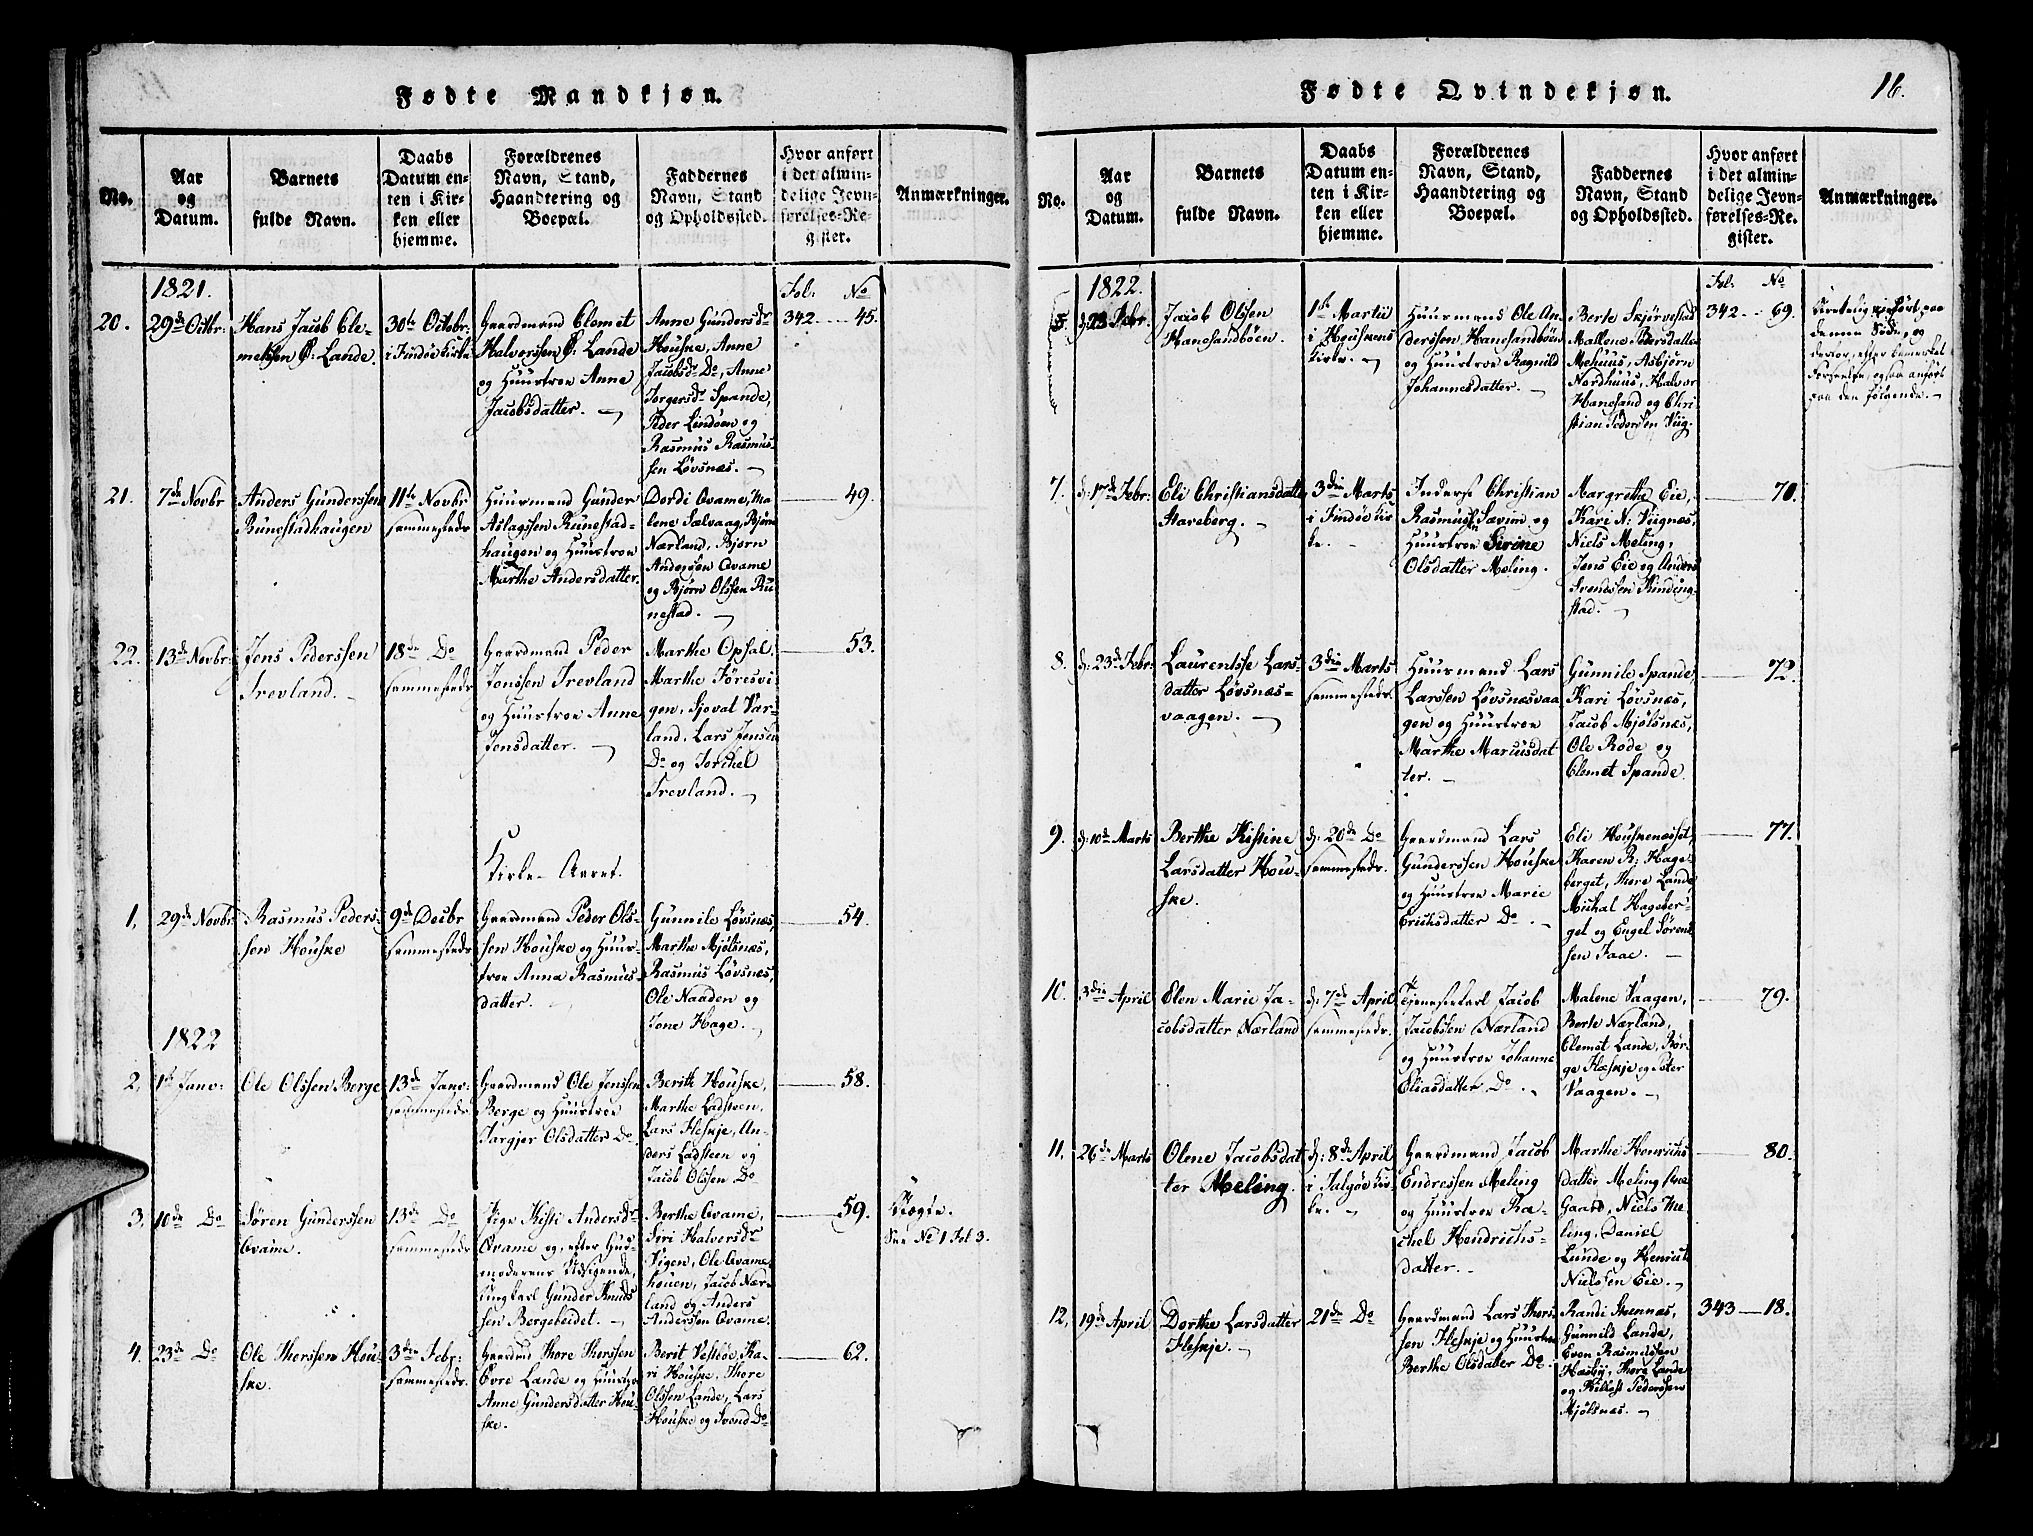 Fødte Mandkjøn.
No.
Aar
og
Datum.
Barnets
fulde Navn.
Daabs
Datum en-
ten i Kir-
ken eller
hjemme.
Forældrenes
Navn, Stand,
Haandtering og
Boepæl.
Faddernes
Navn, Stand
og Opholdssted.
Hvor anført
i det almin-
delige Jevn-
førelses-Re-
gister.
Anmærkninger.
1821.
Fol: No
20.
29de Octbr:
Hans Jacob Cle-
metsen Ø: Lande.
30te Octobr:
i Findøe Kirke
Gaardmand Clemet
Halvorssen Ø: Lande
og Huustroe Anne
Jacobsdatter.
Anne Gundersdr
Houske, Anne
Jacobsdr Do, Anne
Torgersdr Spande,
Peder Lindøen og
Rasmus Rasmus-
sen Løvsnæs.
342 45.
21.
7de Novbr
Anders Gunderssen
Runestadhaugen
11te Novbr
sammestedr
Huusmand Gunder
Aslagssen Runestad-
haugen og Huustroe
Marthe Andersdatter.
Dordi Qvame, Ma-
lene Sælvaag, Bjørn
Nærland, Bjørn
Anderssen Qvame
og Bjørn Olssen Ru-
nestad.
49.
22.
13de Novbr:
Jens Pederssen
Trevland.
18de Do
sammestedr
Gaardmand Peder
Jonssen Trevland
og Huustroe Anne
Jensdatter.
Marthe Opsal,
Marthe Føresvi-
gen, Sjovat Var-
land, Lars Jensen
Do og Torchel
Trevland.
53.
Kirke-Aaret.
1.
29de Novbr:
Rasmus Peders-
sen Houske
9de Decbr
sammestedr
Gaardmand Peder Ols-
sen Houske og Huus-
troe Anna Rasmus-
datter.
Gunnile Løvsnæs,
Marthe Mjølsnæs,
Rasmus Løvsnæs,
Ole Naaden og
Tone Hage.
54.
1822
2.
1te Janv:
Ole Olssen Berge
13de Janv:
sammestedr
Gaardmand Ole Jenssen
Berge og Huustroe
Targjer Olsdatter Do
Berith Houske,
Marthe Ladsteen,
Lars Fleskje, An-
ders Ladsteen og
Jacob Olssen Do
58.
3.
10de Do
Søren Gunderssen
Qvame.
13de Do
sammestedr
Pige Kisti Andersdr
Qvame og, efter Gud-
moderens Udsigende,
Ungkarl Gunder Knuds-
sen Bergebeidet.
Berthe Qvame,
Siri Halversdr
Vigen, Ole Qvame-
houen, Jacob Nær-
land og Anders
Anderssen Qvame.
59.
Uægte.
See No 1 Fol 3.
4.
23de Do
Ole Thorssen Hou-
ske.
3die Febr:
sammestedr.
Gaardmd Thore Thorssen
Evre Lande og Huustroe
Anne Gundersdatter Hou-
ske.
Berit Vestbøe, Ka-
ri Houske, Thore
Olssen Lande, Lars
Houske og Svend Do
62.
Fødte Qvindekjøn.
16.
No.
Aar
og
Datum.
Barnets
fulde Navn.
Daabs
Datum en-
ten i Kir-
ken eller
hjemme.
Forældrenes
Navn, Stand,
Haandtering og
Boepæl.
Faddernes
Navn, Stand
og Opholdssted.
Hvor anført
i det almin-
delige Jevn-
førelses-Re-
gister.
Anmærkninger.
1822.
Fol. No
Febr:
Jacob Olssen
Hanesandbøen.
1te Martii
i Houskens
Kirke.
Huusmand Ole An-
derssen Hanesandbøen
og Huustroe Ragnild
Johannesdatter.
Berte Skjørvestad
Mallene Pedersdatter
Mehuus, Asbjørn
Nordhuus, Halvor
Hanesand og Chri-
stian Pedersen Viig.
342 69.
Urettelig indført paa
denne Side, og
derfor, efter bemærket
Forseelse, ogsaa anført
paa den følgende.
7.
d: 17de Febr:
Eli Christiansdatter
Stareberg.
3die Marts
i Findøe Kir-
ke.
Inderst Christian
Rasmussen Sævim og
Huustroe Sirine
Olsdatter Meling.
Margrethe Eie,
Kari N: Viignæs,
Niels Meling,
Jens Eie og Anders
Svendsen Kinding-
stad.
70.
8.
d: 23de Febr:
Laurentsse Lars-
datter Løvsnæs-
vaagen.
3die Marts
sammestedr.
Huusmand Lars
Larssen Løvsnæsvaa-
gen og Huustroe
Marthe Marcusdat-
ter.
Gunnile Spande,
Kari Løvsnæs,
Jacob Mjølsnæs,
Ole Rode og
Clemet Spande.
72.
9.
d: 10de Marts
Berthe Kistine
Larsdatter Hou-
ske.
d: 20de Do
sammestedr.
Gaardmand Lars
Gunderssen Houske
og Huustroe Marie
Erichsdatter Do.
Eli Houskenæsset,
Karen R: Hage-
berget, Thore Lande
Michal Hageber-
get og Engel Søren-
sen Faae.
77.
10.
3die April
Elen Marie Ja-
cobsdatter Nærland
d: 7de April
sammestedr.
Tjenestekarl Jacob
Jacobssen Nærland
og Huustroe Johanne
Eliasdatter Do.
Malene Vaagen,
Berte Nærland,
Clemet Lande, Bør-
ge Flæskje og Peter
Vaagen.
79.
11.
26de Marts
Olene Jacobsdat-
ter Meling.
d: 8de April
i Talgøe Kir-
ke.
Gaardmand Jacob
Endressen Meling
og Huustroe Ra-
chel Hendrichs-
datter.
Marthe Henrichs-
datter Meling
Gaard, Niels Me-
ling, Daniel
Lunde og Henrich
Nielssen Eie.
80.
12.
19de April
Dorthe Larsdatter
Fleskje.
21de Do
Gaardmand Lars Thors-
sen Fleskje og Huustroe
Berthe Olsdatter Do.
Randi Steennæs,
Gunnild Lande,
Even Rasmussen
Hæsby, Thore Lande
og Pederssen
Mjølsnæs.
343 18.